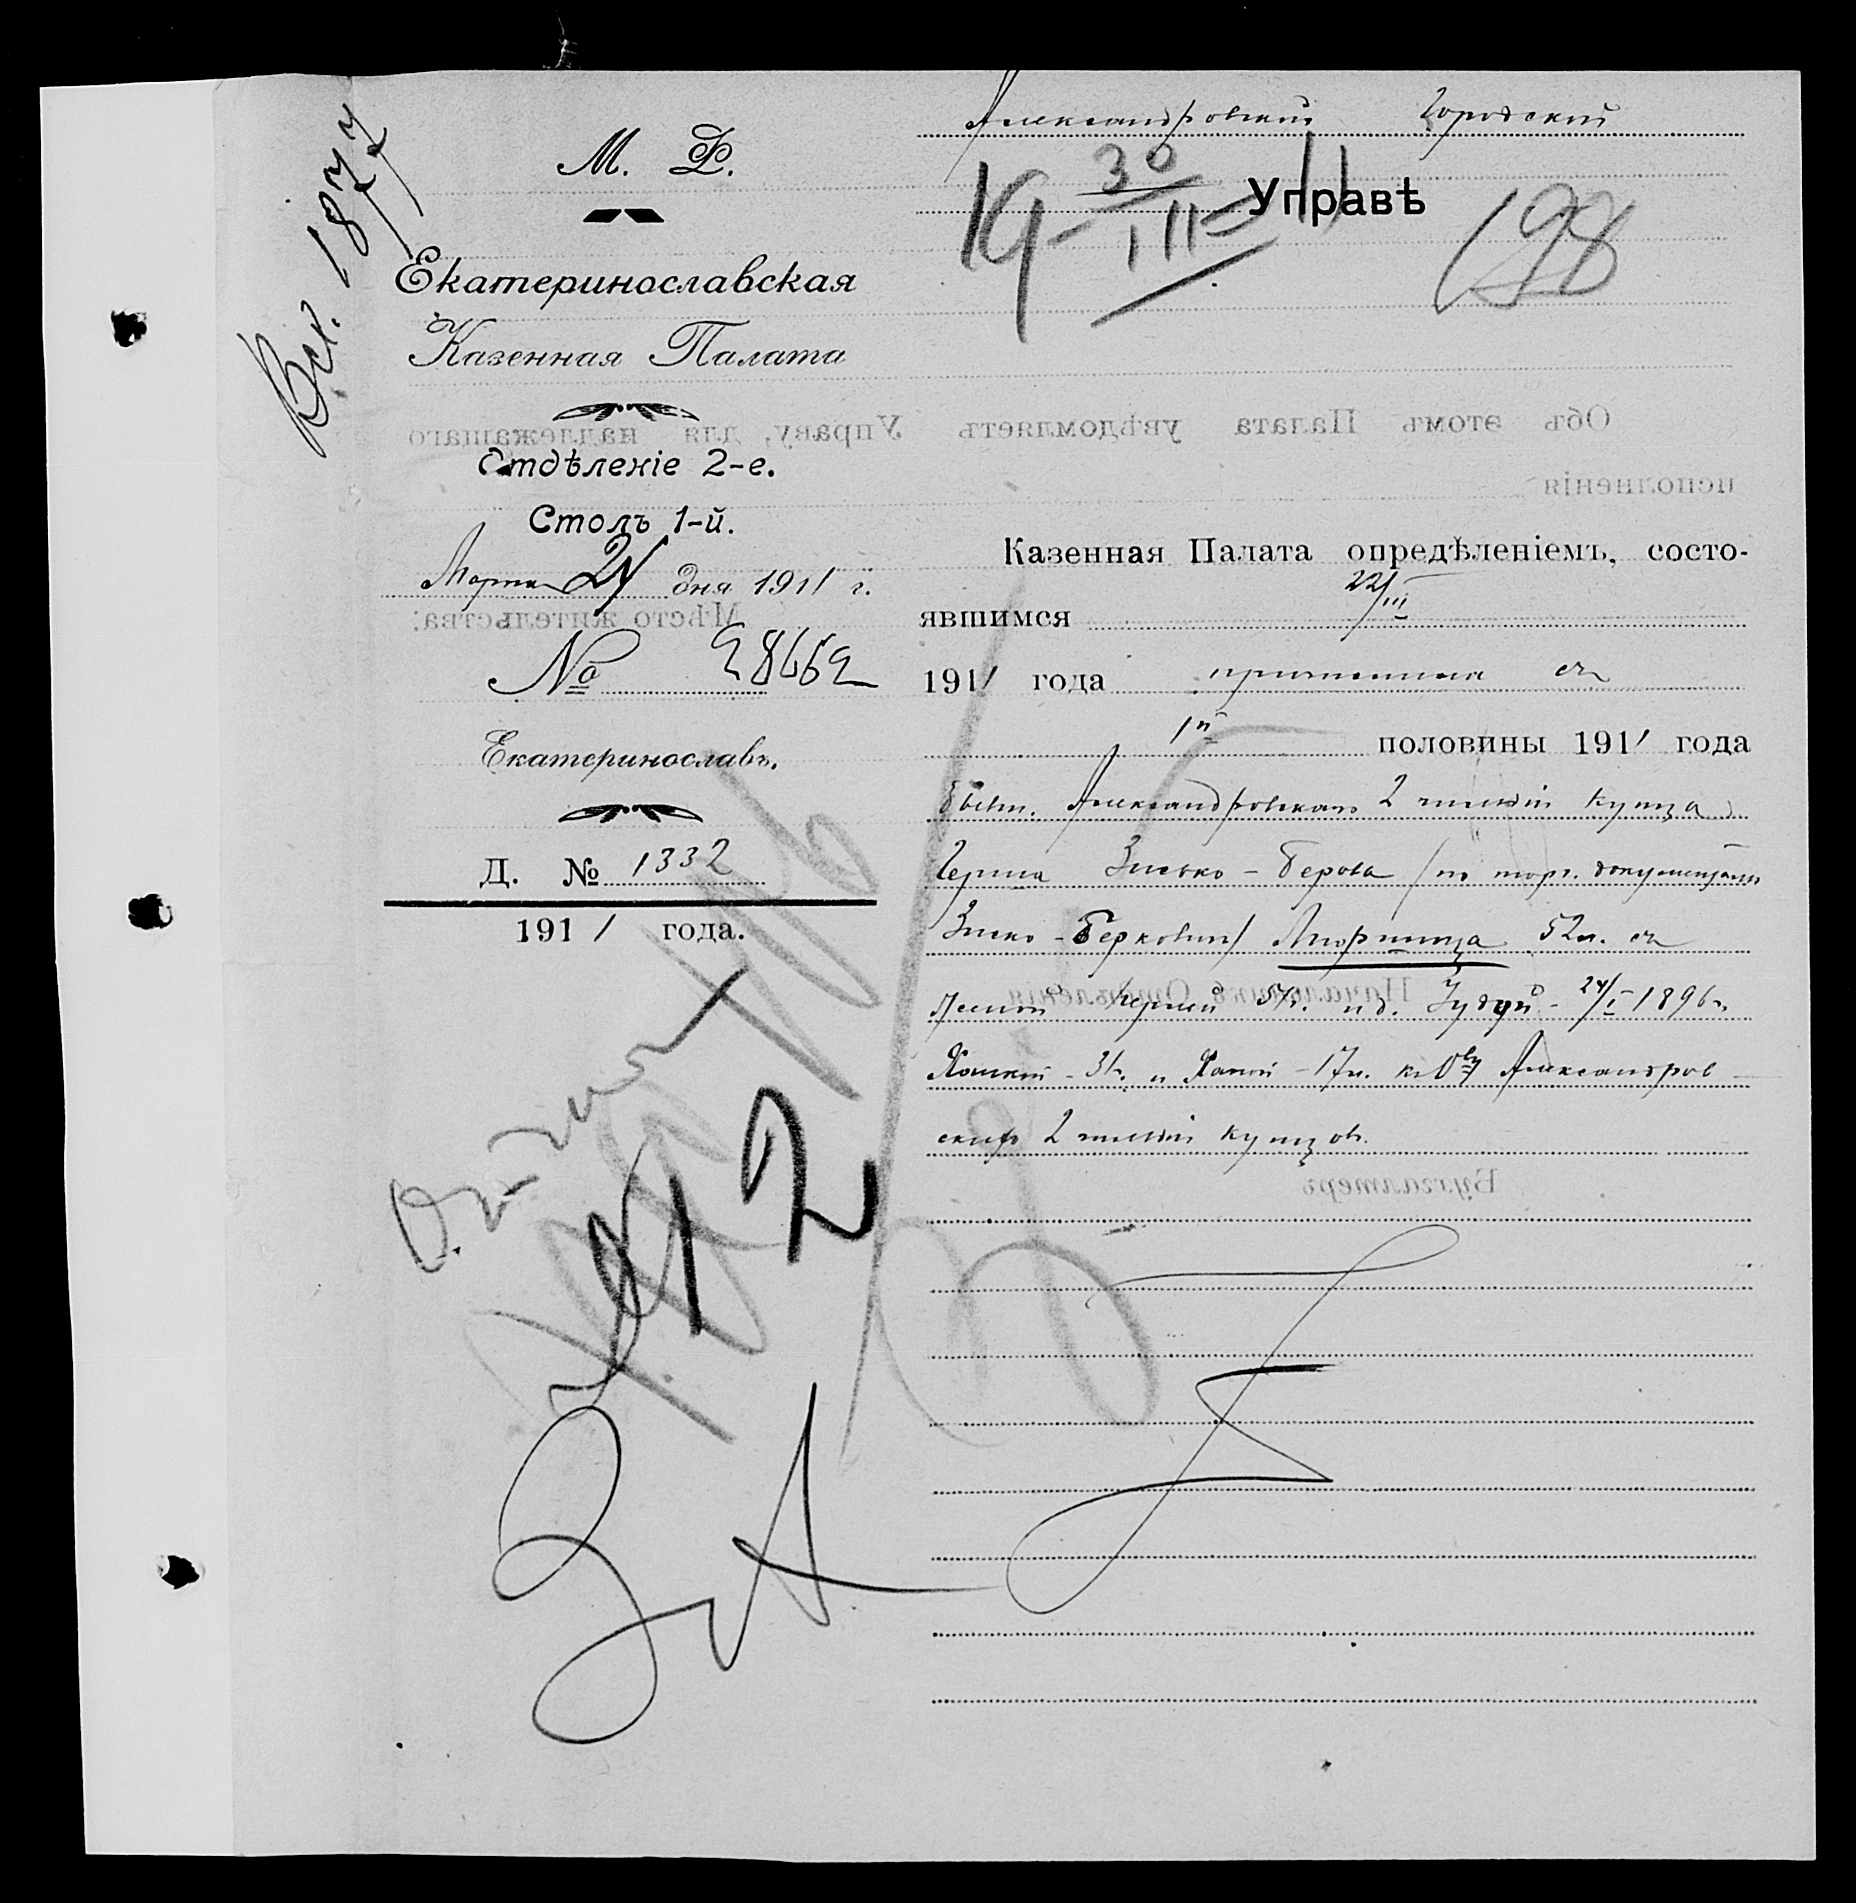 Вх. 1877
М. Ф.
Екатеринославская
Казенная Палата
Отдѣленіе 2-е.
Столъ 1-й.
Марта 24 дня 1911 г.
№ 28662
Екатеринославъ.
Д. № 1332
1911 года.
Александровской Городской
Управѣ
19-30/III-11
198
Казенная Палата опредѣленіемъ, состо-
явшимся 22/III
1911 года причислила съ
1й половины 1911 года
бывш. Александровскаго 2 гильдіи купца
Герша Зисько-Берова (по торг. документамъ
Зиско-Берковичъ) Лифшица 52 л. съ
женой
24/I 1896 г.
и Ханой - 17 л. къ Об-ву Александров-
скихъ 2 гильдіи купцовъ.
912
Объ этомъ Палата увѣдомляетъ Управу, для надлежащаго
исполненія
Мѣсто жительства:
Начальникъ Отдѣленія
Бухгалтеръ